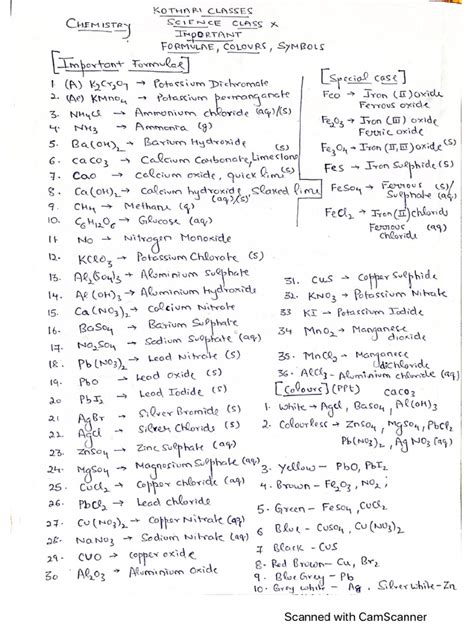 KOTHARI CLASSES
CHEMISTRY
SCIENCE CLASS X
IMPORTANT
FORMULAE, COLOURS, SYMBOLS
[Important Formulae]
1 (A) K2Cr2O7 → Potassium Dichromate
2. (Ae) KMnO4 → Potassium permanganate
3. NH4Cl → Ammonium chloride (aq)/(s)
4. NH3 → Ammonia (g)
5. Ba(OH)2 → Barium Hydroxide (s)
6. CaCO3 → Calcium Carbonate, Limestone
7. CaO → calcium oxide, quick lime (s)
8. Ca(OH)2 → Calcium hydroxide, Slaked lime (aq)/(s)
9. CH4 → Methane (g)
10. C6H12O6 → Glucose (aq)
11. NO → Nitrogen Monoxide
12. KClO3 → Potassium Chlorate (s)
13. Al2(SO4)3 → Aluminium Sulphate
14. Al(OH)3 → Aluminium Hydroxide
15. Ca(NO3)2 → Calcium Nitrate
16. BaSO4 → Barium Sulphate
17. Na2SO4 → Sodium Sulphate (aq)
18. Pb(NO3)2 → Lead Nitrate (s)
19. PbO → Lead Oxide (s)
20 PbI2 → Lead Iodide (s)
21 AgBr → Silver Bromide (s)
22. AgCl → Silver Chloride (s)
23. ZnSO4 → Zinc Sulphate (aq)
24. MgSO4 → Magnesium Sulphate (aq)
25. CuCl2 → Copper chloride (aq)
26. PbCl2 → Lead chloride
27. Cu(NO3)2 → Copper Nitrate (aq)
28. NaNO3 → Sodium Nitrate (aq)
29. CuO → copper oxide
30 Al2O3 → Aluminium Oxide
[Special case]
FeO → Iron (II) oxide
Ferrous oxide
Fe2O3 → Iron (III) oxide
Ferric oxide
Fe3O4 → Iron (II,III) oxide
FeS → Iron Sulphide (s)
FeSO4 → Ferrous (s)/
Sulphate (aq)
FeCl2 → Iron (II) chloride
Ferrous (aq)
chloride
31. CuS → Copper Sulphide
32. KNO3 → Potassium Nitrate
33 KI → Potassium Iodide
34 MnO2 → Manganese
dioxide
35. MnCl2 → Manganese
dichloride
36. AlCl3 - Aluminium chloride (aq)
[Colours] (PPT)
CaCO3
1. White → AgCl, BaSO4, Al(OH)3
2. Colourless → ZnSO4, MgSO4, PbCl2
Pb(NO3)2, AgNO3 (aq)
3. Yellow - PbO, PbI2
4. Brown - Fe2O3, NO2;
5. Green - FeSO4, CuCl2
6 Blue - CuSO4, Cu(NO3)2
7 Black - CuS
8. Red Brown - Cu, Br2
9. Blue Grey - Pb
10. Grey white - Ag, Silver white - Zn
Scanned with CamScanner